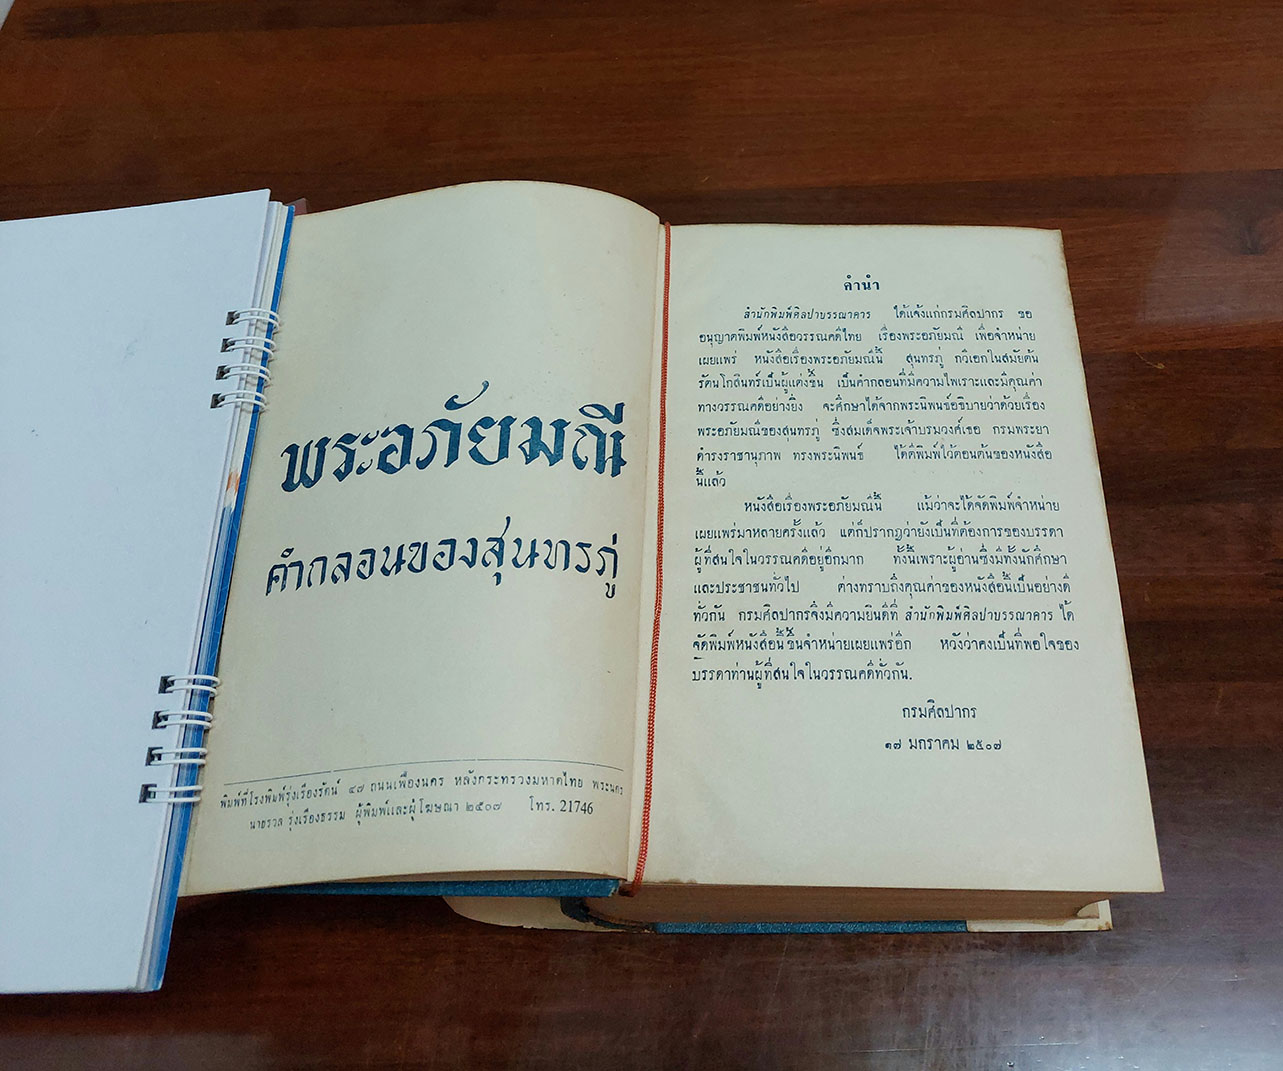 พระอภัยมณี
คำกลอนของสุนทรภู่
พิมพ์ที่โรงพิมพ์รุ่งเรืองรัตน์ ๔๗ ถนนเฟื่องนคร หลังกระทรวงมหาดไทย พระนคร
นายรวล รุ่งเรืองธรรม ผู้พิมพ์และผู้โฆษณา ๒๕๐๗ โทร. 21746
คำนำ
สำนักพิมพ์ศิลปาบรรณาคาร ได้แจ้งแก่กรมศิลปากร ขอ
อนุญาตพิมพ์หนังสือวรรณคดีไทย เรื่องพระอภัยมณี เพื่อจำหน่าย
เผยแพร่ หนังสือเรื่องพระอภัยมณีนี้ สุนทรภู่ กวีเอกในสมัยต้น
รัตนโกสินทร์เป็นผู้แต่งขึ้น เป็นคำกลอนที่มีความไพเราะและมีคุณค่า
ทางวรรณคดีอย่างยิ่ง จะศึกษาได้จากพระนิพนธ์อธิบายว่าด้วยเรื่อง
พระอภัยมณีของสุนทรภู่ ซึ่งสมเด็จพระเจ้าบรมวงศ์เธอ กรมพระยา
ดำรงราชานุภาพ ทรงพระนิพนธ์ ได้ตีพิมพ์ไว้ตอนต้นของหนังสือ
นี้แล้ว
หนังสือเรื่องพระอภัยมณีนี้ แม้ว่าจะได้จัดพิมพ์จำหน่าย
เผยแพร่มาหลายครั้งแล้ว แต่ก็ปรากฏว่ายังเป็นที่ต้องการของบรรดา
ผู้ที่สนใจในวรรณคดีอยู่อีกมาก ทั้งนี้เพราะผู้อ่านซึ่งมีทั้งนักศึกษา
และประชาชนทั่วไป ต่างทราบถึงคุณค่าของหนังสือนี้เป็นอย่างดี
ทั่วกัน กรมศิลปากรจึงมีความยินดีที่ สำนักพิมพ์ศิลปาบรรณาคาร ได้
จัดพิมพ์หนังสือนี้ขึ้นจำหน่ายเผยแพร่อีก หวังว่าคงเป็นที่พอใจของ
บรรดาท่านผู้ที่สนใจในวรรณคดีทั่วกัน.
กรมศิลปากร
๑๗ มกราคม ๒๕๐๗